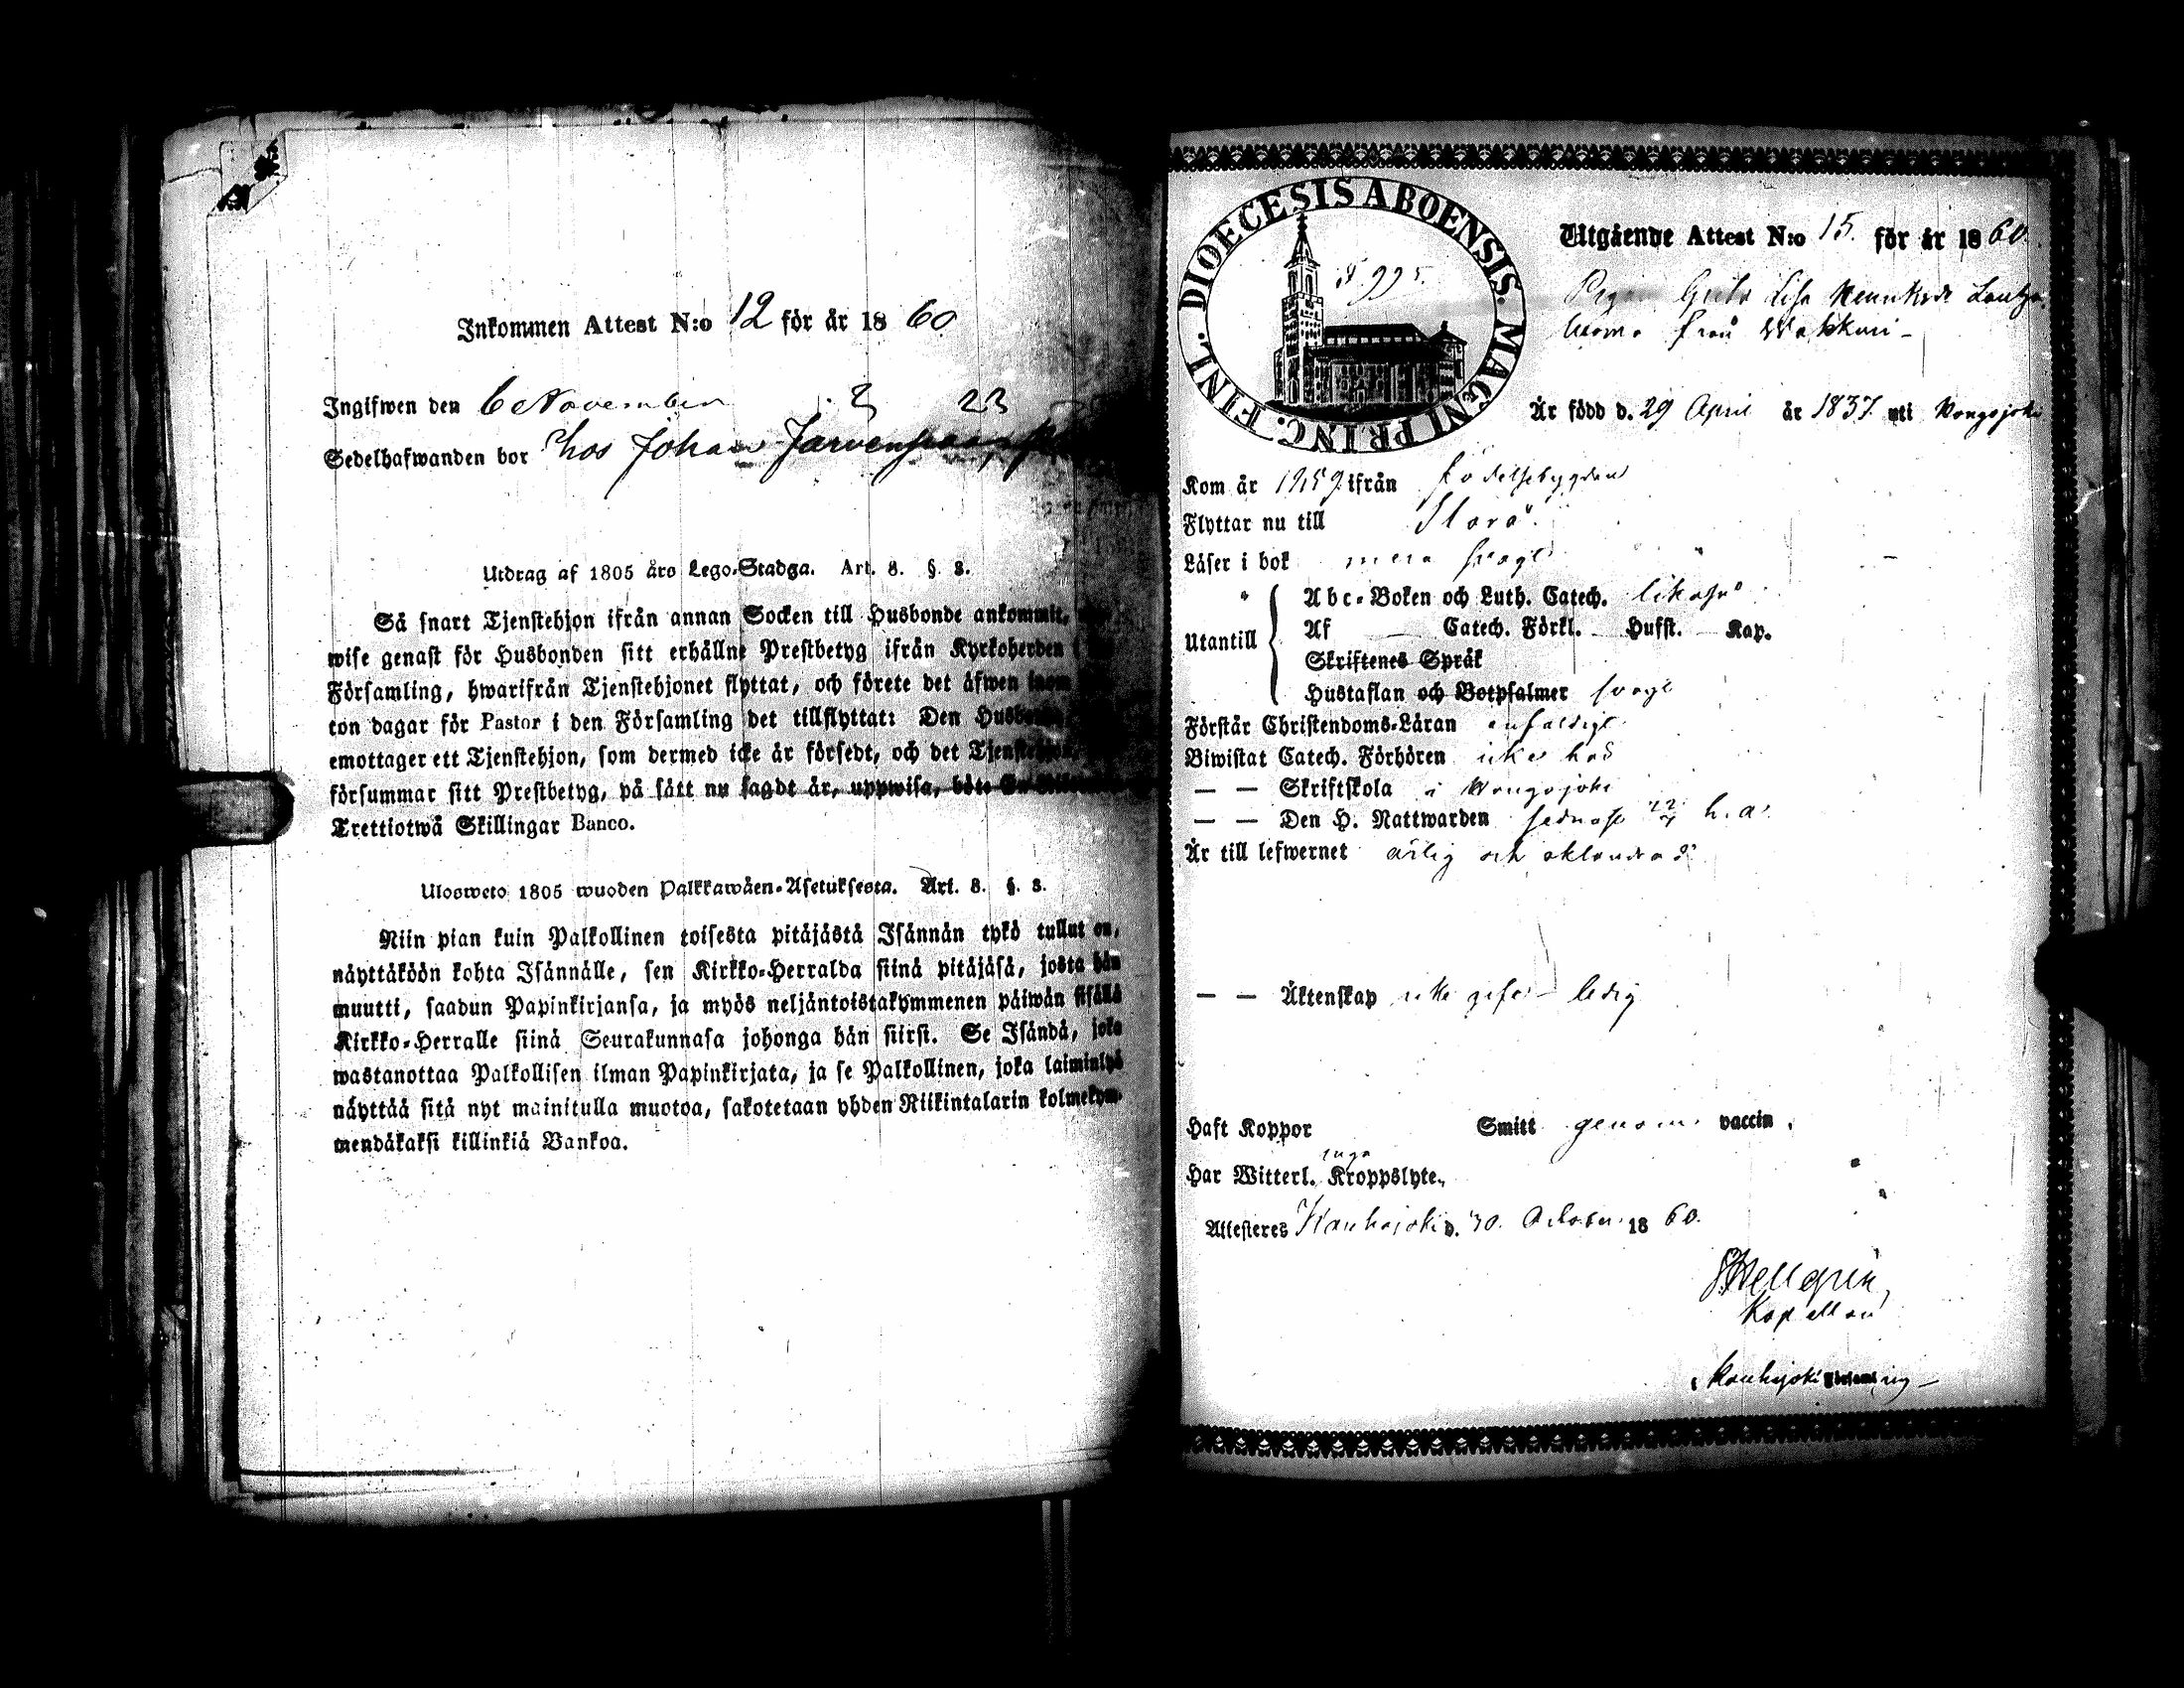 Inkommen Attest N:o 12 för år 1860
Ingifwen den 6 November 23
Sedelhafwanden bor hos Johan
Utdrag af 1805 års Lego-Stadga. Art. 8. §. 8.
Så snart Tjenstehjon ifrån annan Socken till Husbonde ankommit,
wise genast för Husbonden sitt erhållne Prestbetyg ifrån Kyrkoherden i
Församling, hwarifrån Tjenstehjonet flyttat, och förete det äfwen inom
ton dagar för Pastor i den Församling det tillflyttat: Den Husbonde
emottager ett Tjenstehjon, som dermed icke är försedt, och det Tjenstehjon
försummar sitt Prestbetyg, på sätt nu sagdt är, uppwisa, böte En
Trettiotwå Skillingar Banco.
Ulosweto 1805 wuoden Palkkawäen-Asetuksesta. Art. 8. §. 8.
Niin pian kuin Palkollinen toisesta pitäjästä Isännän tykö tullut on,
näyttäköön kohta Isännälle, sen Kirkko-Herralda siinä pitäjäsä, josta hän
muutti, saadun Papinkirjansa, ja myös neljäntoistakymmenen päiwän sisällä
Kirkko-Herralle siinä Seurakunnasa johonga hän siirsi. Se Isändä, joka
wastanottaa Palkollisen ilman Papinkirjata, ja se Palkollinen, joka laiminlyö
näyttää sitä nyt mainitulla muotoa, sakotetaan yhden Riikintalarin kolmekym-
mendäkaksi killinkiä Bankoa.
DIOECESIS ABOENSIS. MAGNI PRINC. FINL.
Utgående Attest N:o 15. för år 1860.
Pigan Greta Lisa
från
Är född d. 29 April år 1837. uti
Kom år 1859 ifrån födelsebygden
Flyttar nu till Storå.
Läser i bok mera svagt
Utantill
Abc-Boken och Luth. Catech. likaså
Af — Catech. Förkl. — Husst. — Kap.
Skriftenes Språk
Hustaflan och Botpsalmer svagt
Förstår Christendoms-Läran enfaldigt
Biwistat Catech. Förhören icke här
— — Skriftskola i
— — Den H. Nattwarden sednast h. a.
Är till lefwernet ärlig och oklandrad
— — Äktenskap icke gift — ledig
Haft Koppor Smitt genom vaccin.
Har Witterl. inga Kroppslyte.
Attesteres Kauhajoki d. 30. October 1860.
Kapellan
i Kauhajoki Församling —